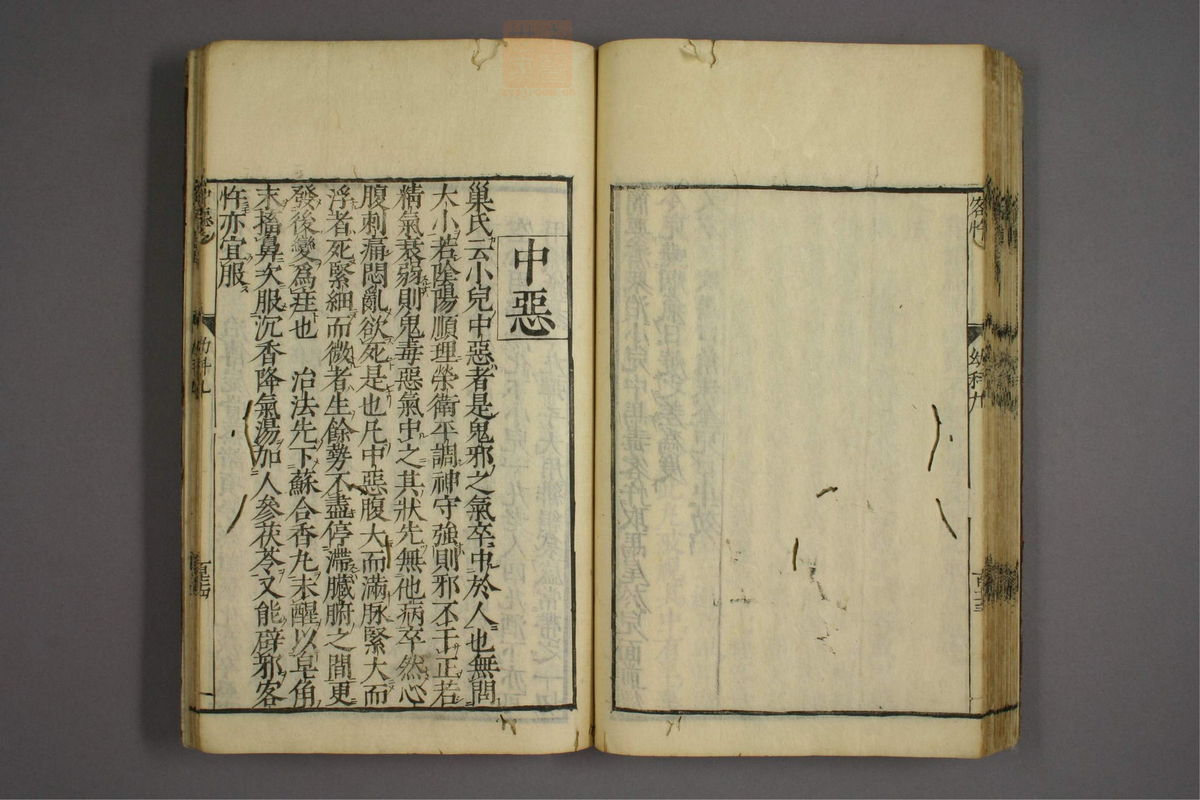 客忤
幼科九
中惡
巢氏云小兒中惡者是鬼邪之氣卒中於人也無間
大小若陰陽順理榮衛平調神守強則邪不干正若
精氣衰弱則鬼毒惡氣中之其狀先無他病卒然心
腹刺痛悶亂欲死是也凡中惡腹大而滿脉緊大而
浮者死緊細而微者生餘勢不盡停滯臟腑之間更
發後變爲疰也 治法先下蘇合香丸未醒以皂角
末搐鼻次服沉香降氣湯加人參茯苓又能辟邪客
忤亦宜服